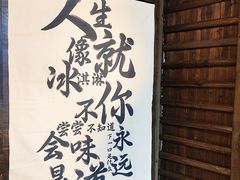 人生就
像
冰淇淋
不
你永远
尝尝不知道
下一口是
味道
会是